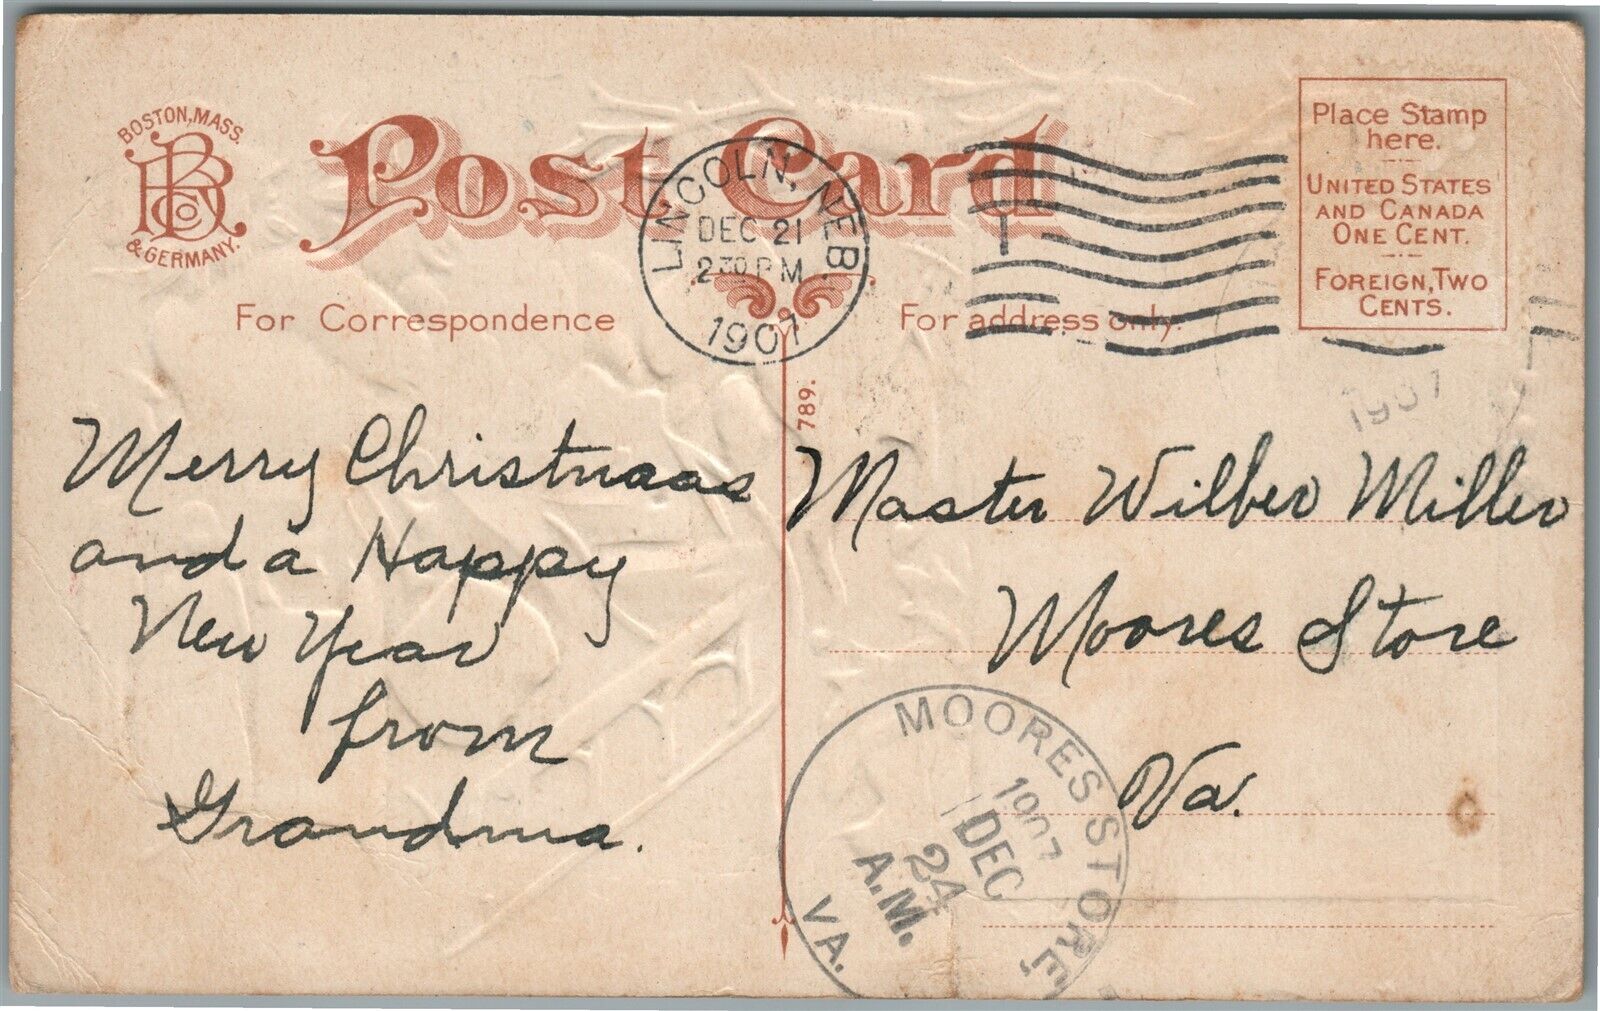 BOSTON, MASS.
RBCo
& GERMANY.
Post Card
LINCOLN, NEB.
DEC 21
2 30 PM
1907
Place Stamp
here.
UNITED STATES
AND CANADA
ONE CENT.
FOREIGN, TWO
CENTS.
For Correspondence
For address only.
789.
1907
Merry Christmas
and a Happy
New Year
from
Grandma.
Master Wilber Miller
Moores Store
Va.
MOORES STORE
1907
DEC
24
A.M.
VA.